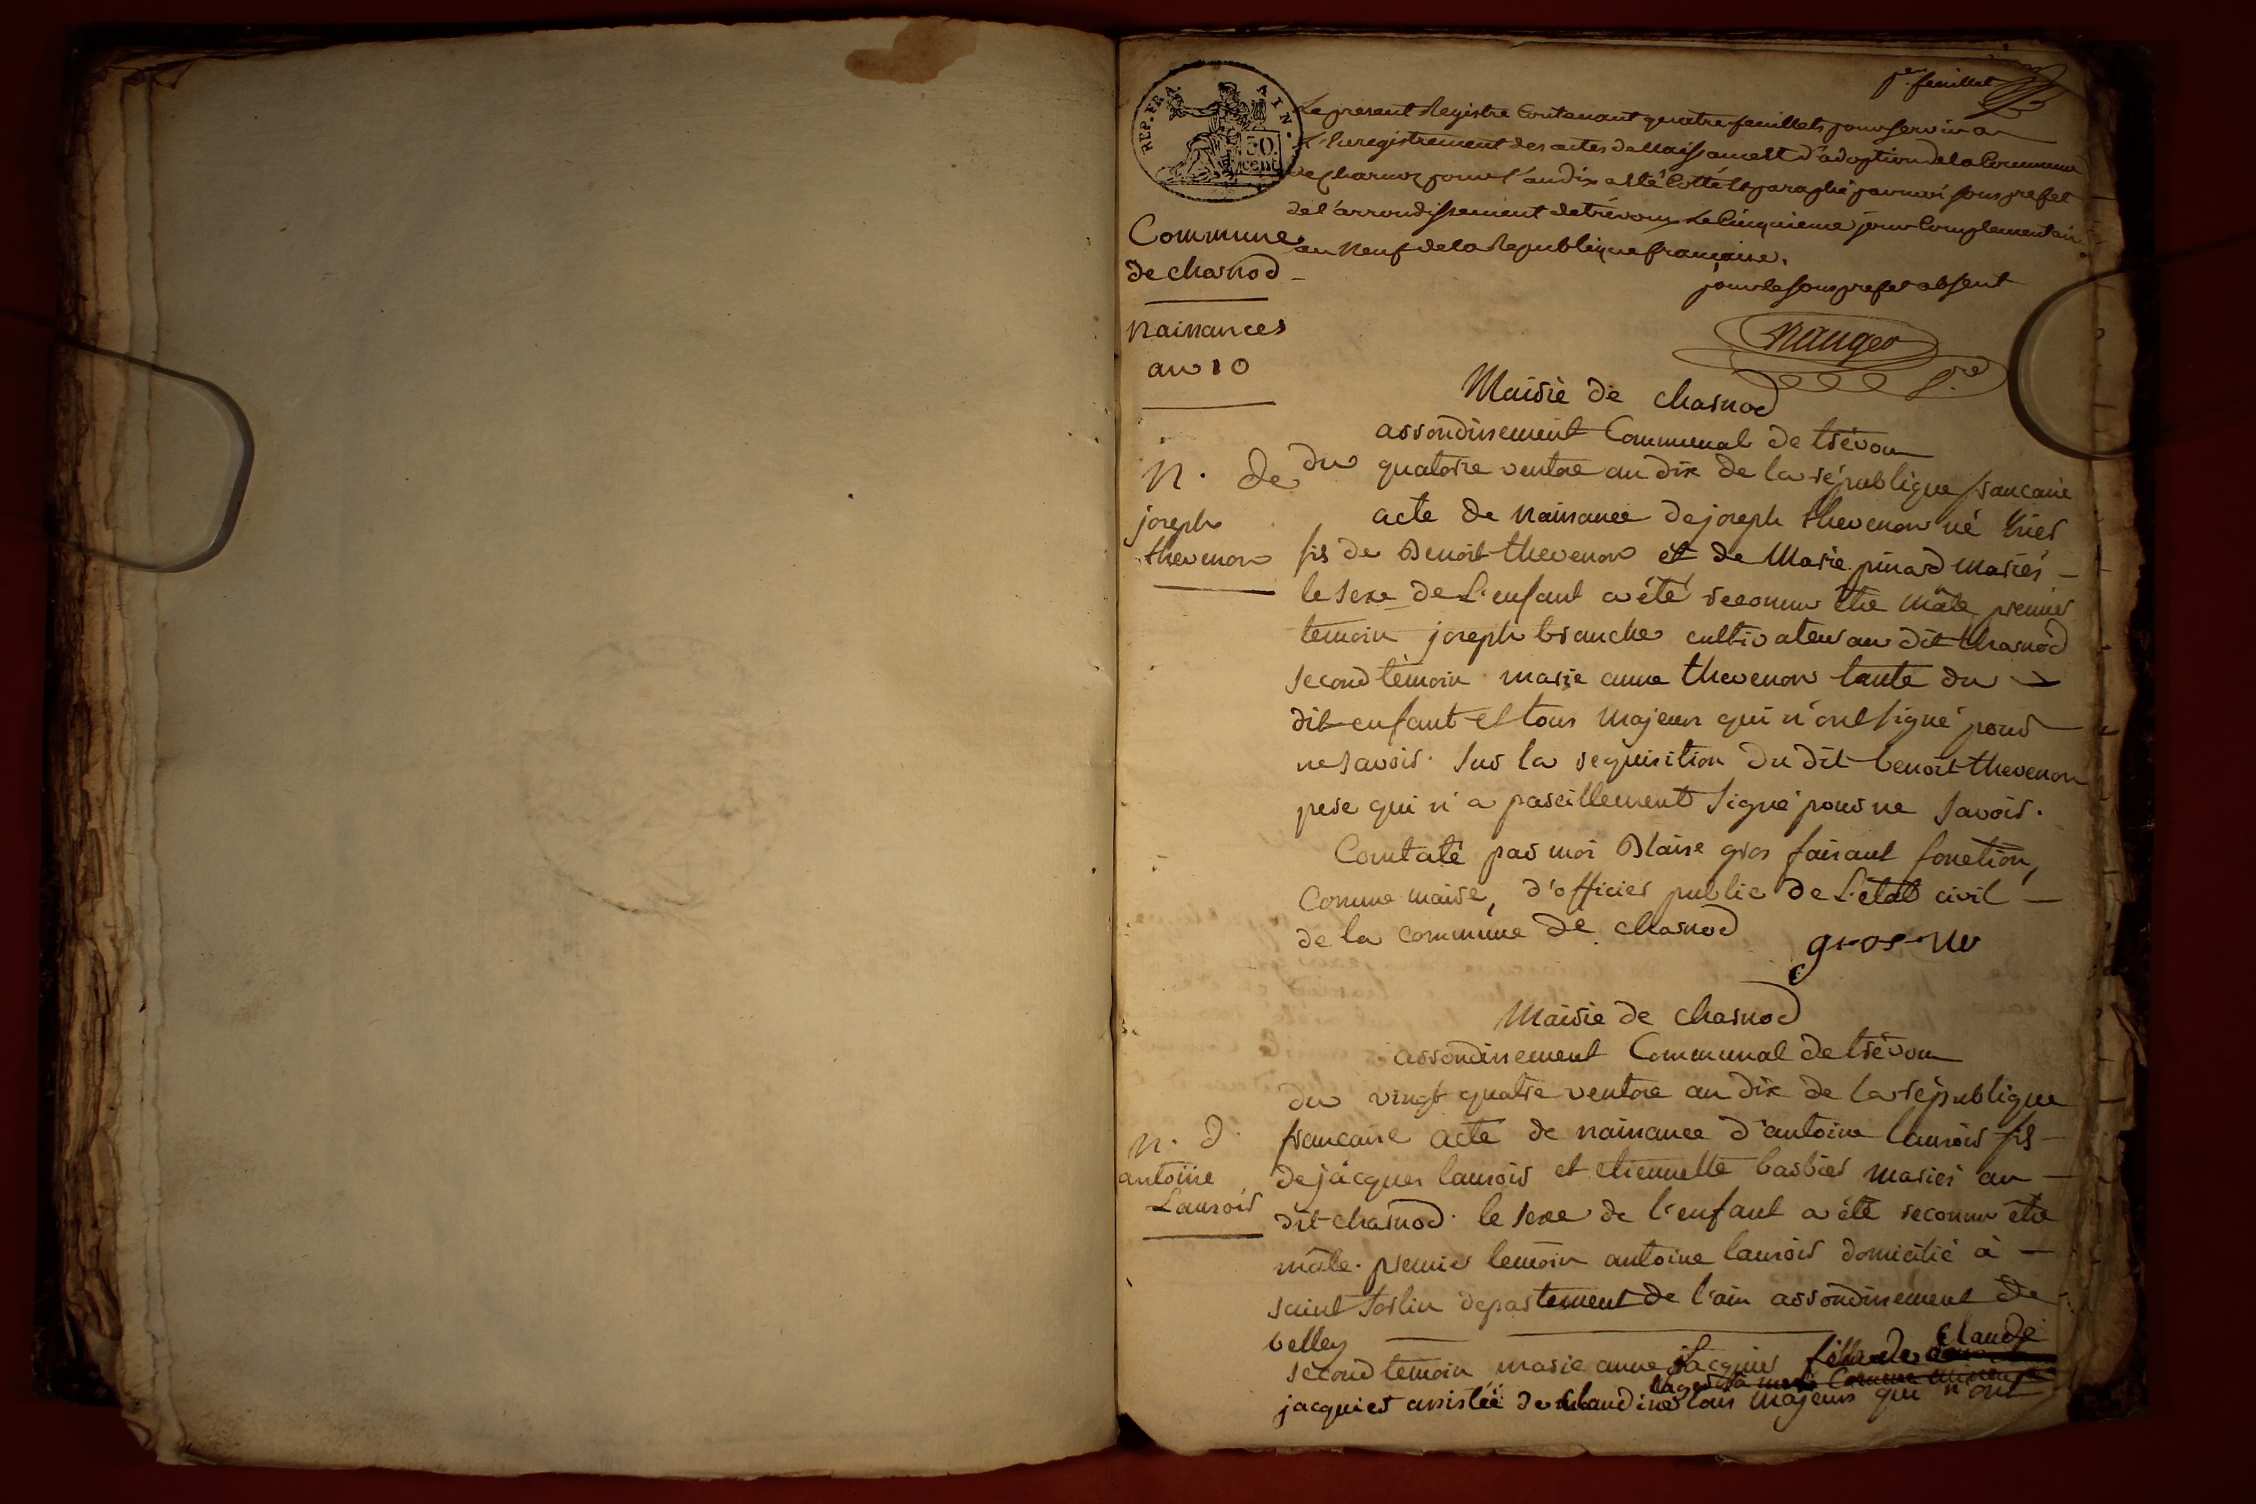 1er feuillet
REP. FRA. AIN. 50. cent
Le present Registre Contenant quatre feuillets pour servir a
L'Enregistrement des actes de Naissance et d'adoption de la Commune
de Charnoz pour l'an dix a été Cotté et paraphé par moi sous prefet
de l'arrondissement de trévoux Le Cinquieme jour Complementaire
an Neuf de la Republique francaise.
pour le sous prefet absent
Commune
de charnod
naissances
an 10
Mairie de charnod
arrondissement Communal de trévou
du quatorze ventose an dix de la république francaise
n. de
joseph
thevenon
acte de naissance de joseph thevenon né hier
fils de Benoit thevenon et de Marie pinard mariés
le sexe de L'enfant a été reconnu être mâle premier
temoin joseph branche cultivateur au dit charnod
second témoin marie anne thevenon tante du
dit enfant et tous majeurs qui n'ont signé pour
ne savoir. sur la requisition du dit benoit thevenon
pere qui n'a pareillement signé pour ne savoir.
Constaté par moi Blaise gros faisant fonction,
Comme maire, d'officier public de L'état civil
de la commune de charnod
gros
Mairie de charnod
arrondissement Communal de trévou
du vingt quatre ventose an dix de la république
n. d.
antoine
Laurois
francaise acte de naissance d'antoine laurois fils
de jacques laurois et etiennette barbier mariés au
dit charnod. le sexe de l'enfant a été reconnu être
mâle. premier temoin antoine laurois domicilié à
saint sorlin departement de l'ain arrondissement de
belley
second temoin marie anne jacquier fille de claude
jacquier assistée de claudine tous majeurs qui n'ont